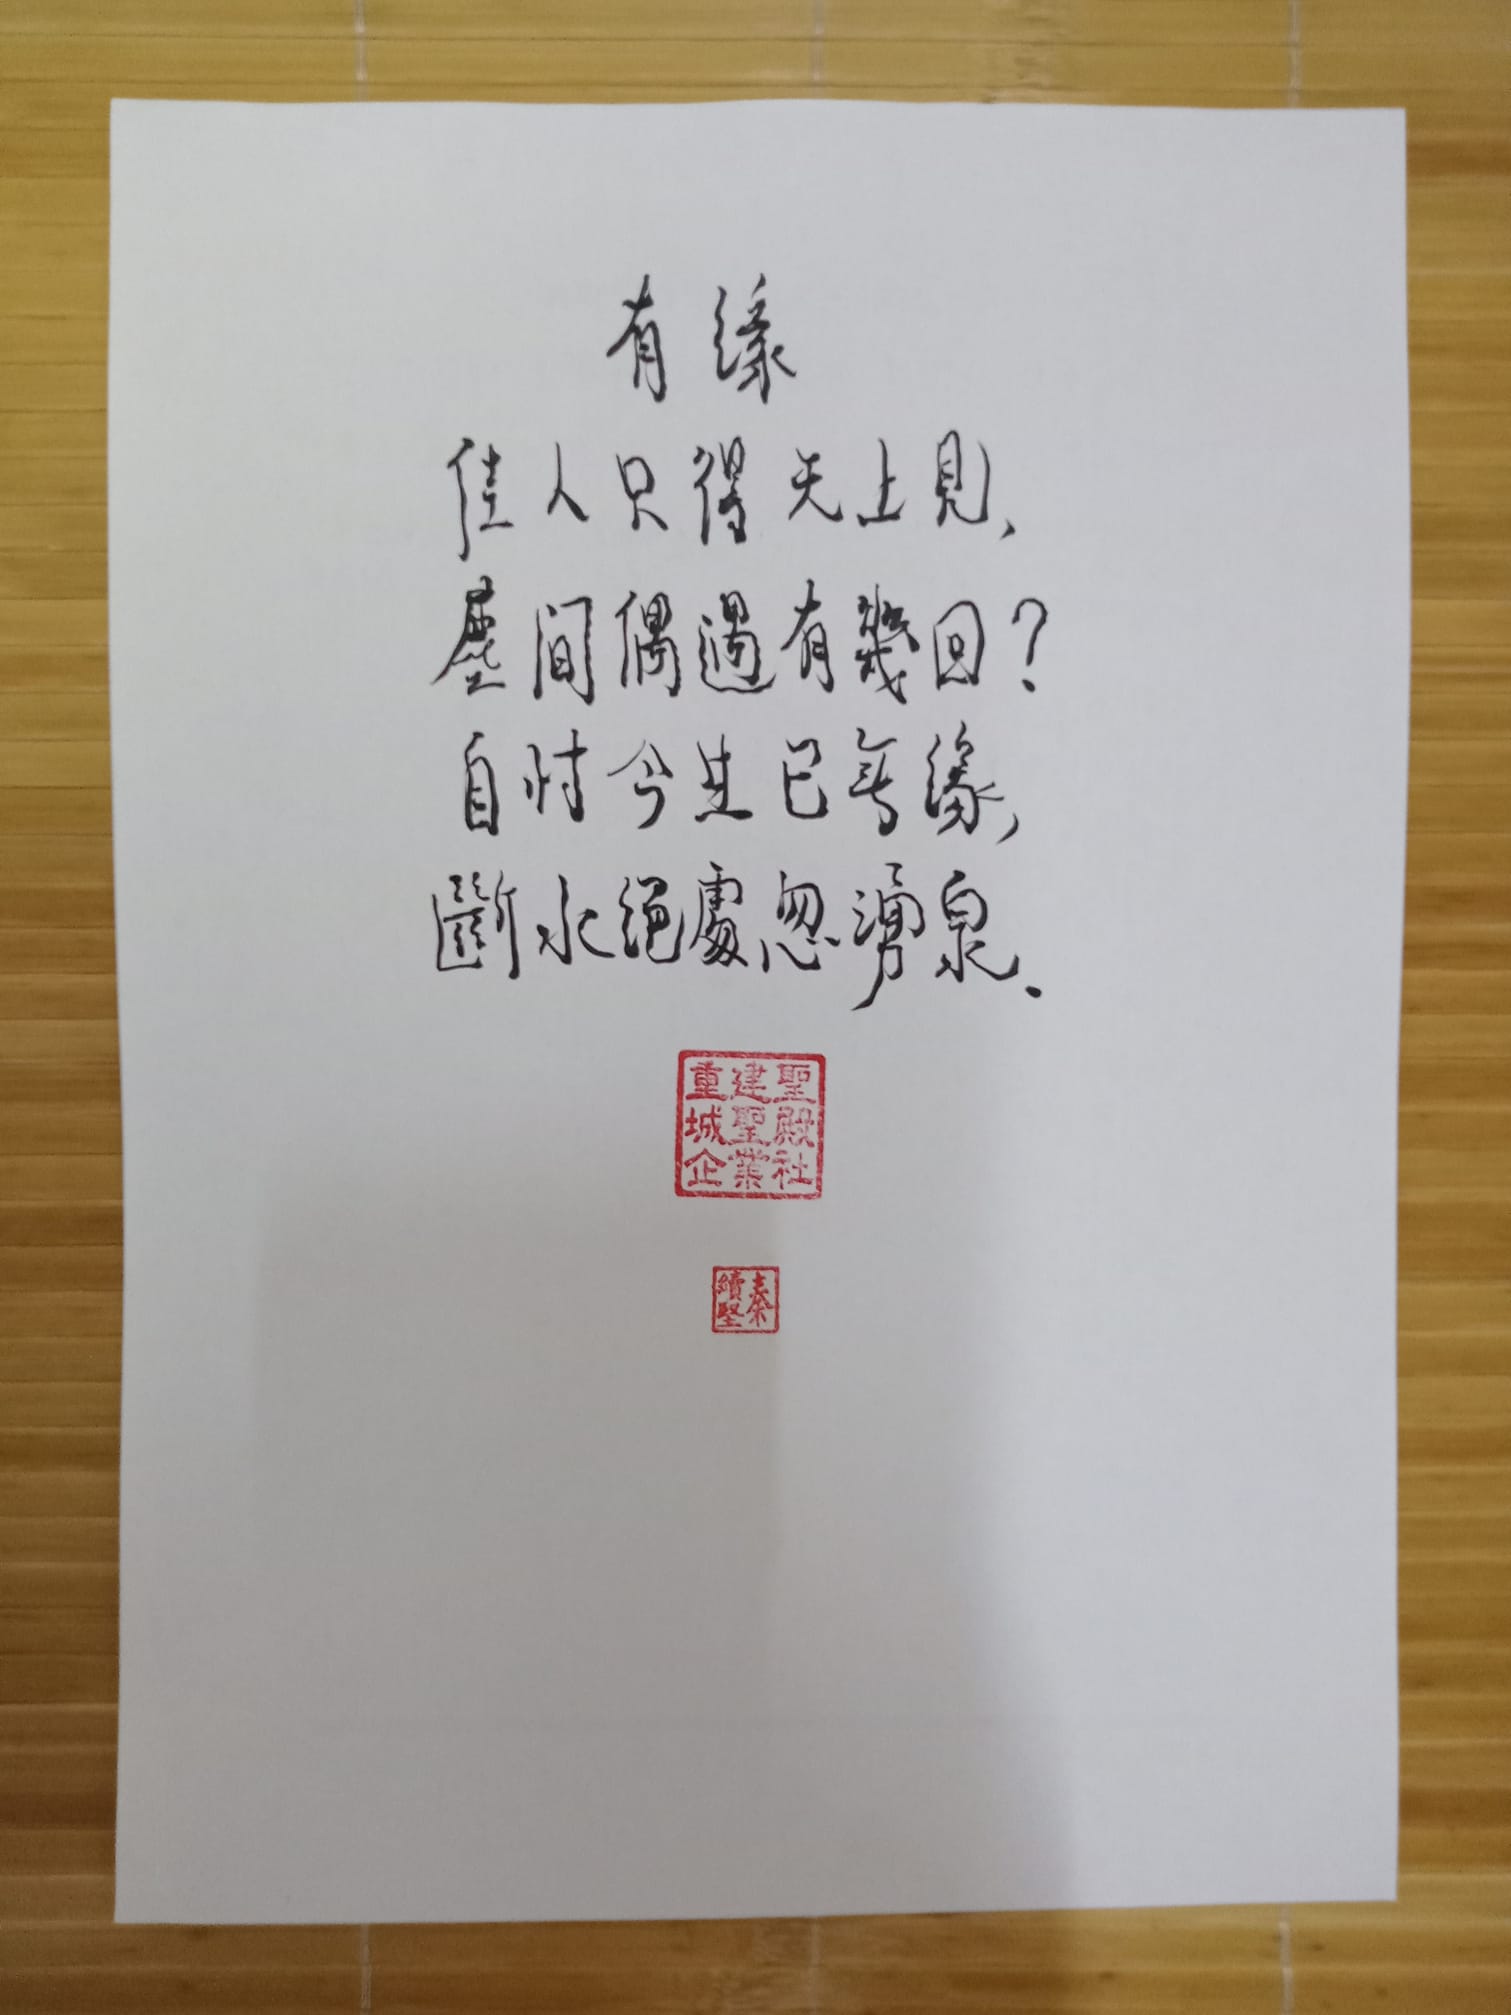 有緣
佳人只得天上見，
塵間偶遇有幾回？
自忖今生已無緣，
斷水絕處忽湧泉．
重建聖
城聖殿
企業社
秦續堅